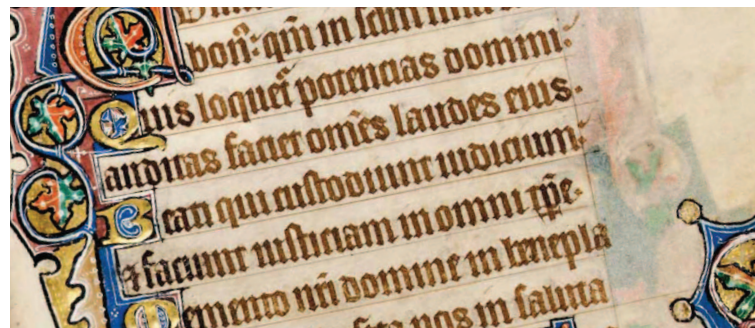 bon⁹: qm̄ in
Quis loquet̄ potencias domini:
auditas faciet om̄es laudes eius.
Beati qui custodiunt iudicium:
& faciunt iusticiam in omni tp̄e.
Memento nr̄i domine in benepla
sita nos in saluta